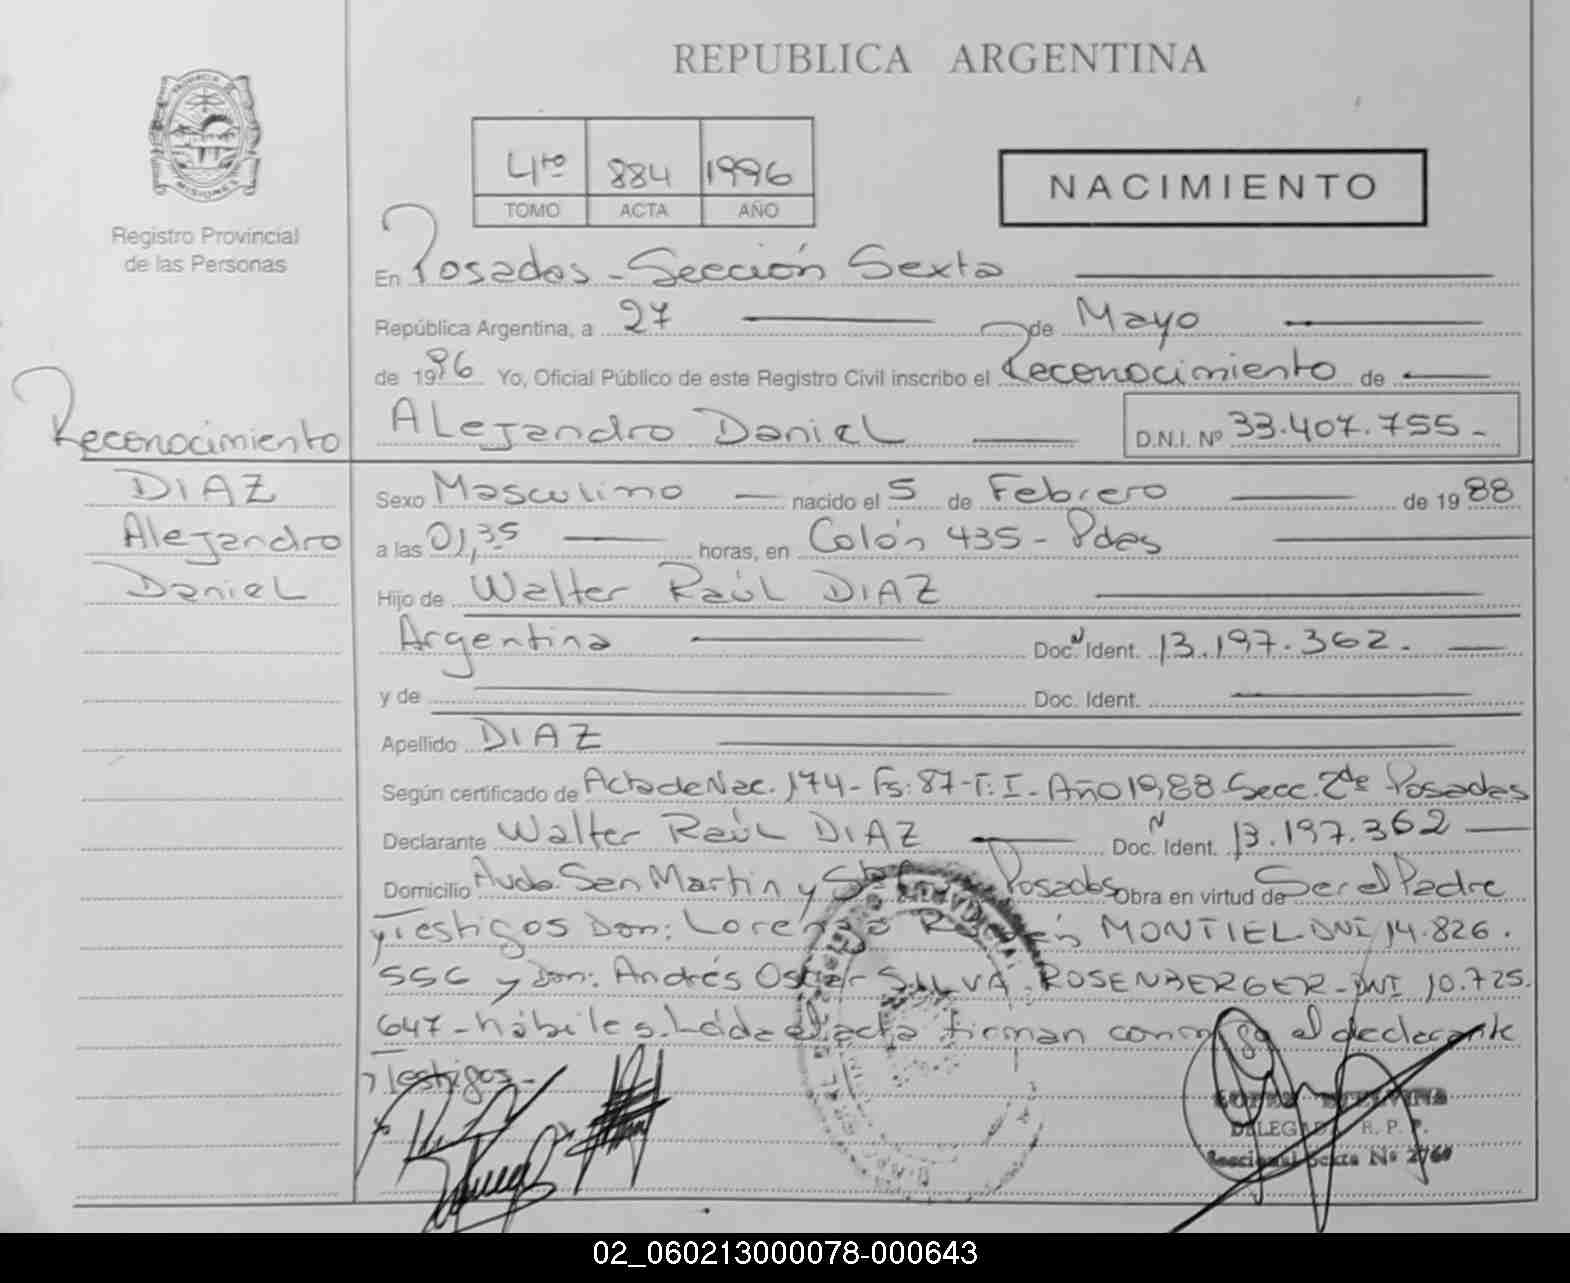 PROVINCIA DE
MISIONES
Registro Provincial
de las Personas
REPUBLICA ARGENTINA
4to 884 1996
TOMO ACTA AÑO
NACIMIENTO
En Posadas - Sección Sexta
República Argentina, a 27 de Mayo
de 1996 Yo, Oficial Público de este Registro Civil inscribo el Reconocimiento de
Alejandro Daniel D.N.I. Nº 33.407.755-
Reconocimiento
DIAZ
Alejandro
Daniel
Sexo Masculino nacido el 5 de Febrero de 1988
a las 01,35 horas, en Colón 435 - Pdas
Hijo de Walter Raúl DIAZ
Argentina Doc. N Ident. 13.197.362.
y de Doc. Ident.
Apellido DIAZ
Según certificado de Acta de Nac. 174 - Fs: 87 - T: I - Año 1988 Secc. 2da Posadas
Declarante Walter Raúl DIAZ Doc. N Ident. 13.197.362
Domicilio Avda. San Martín y Posadas Obra en virtud de Ser el Padre
y Testigos Don: Lorenzo Ramón MONTIEL DNI 14.826.
556 y Don: Andrés Oscar SILVA ROSENBERGER - DNI 10.725.
647 - hábiles. Leída el acta firman conmigo el declarante
y Testigos -
LOPEZ ETELVINA
DELEGADA R. P. P.
Seccional Sexta Nº 2760
02_060213000078-000643